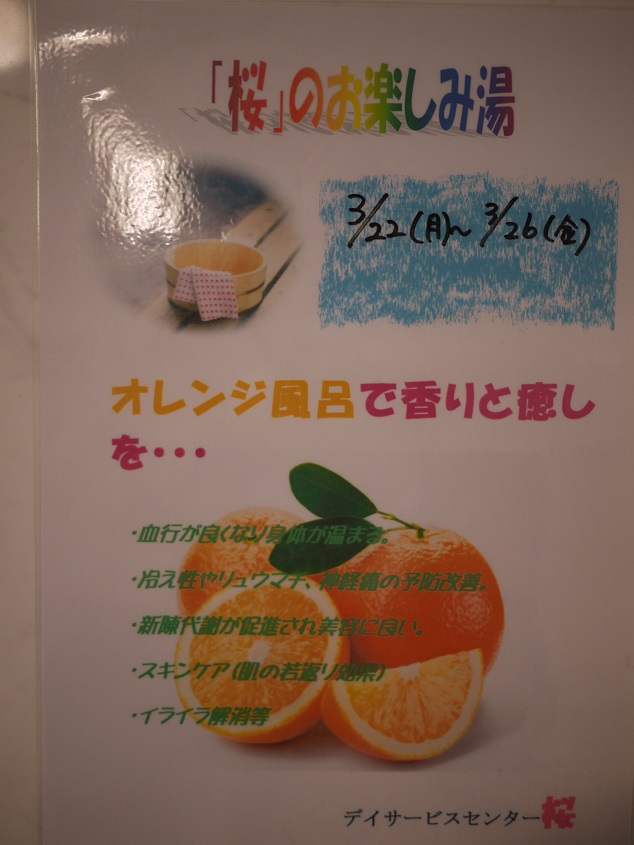 「桜」のお楽しみ湯
3/22(月)~3/26(金)
オレンジ風呂で香りと癒し
を・・・
・血行が良くなり身体が温まる。
・冷え性やリュウマチ、神経痛の予防改善。
・新陳代謝が促進され美容に良い。
・スキンケア(肌の若返り効果)
・イライラ解消等
デイサービスセンター桜